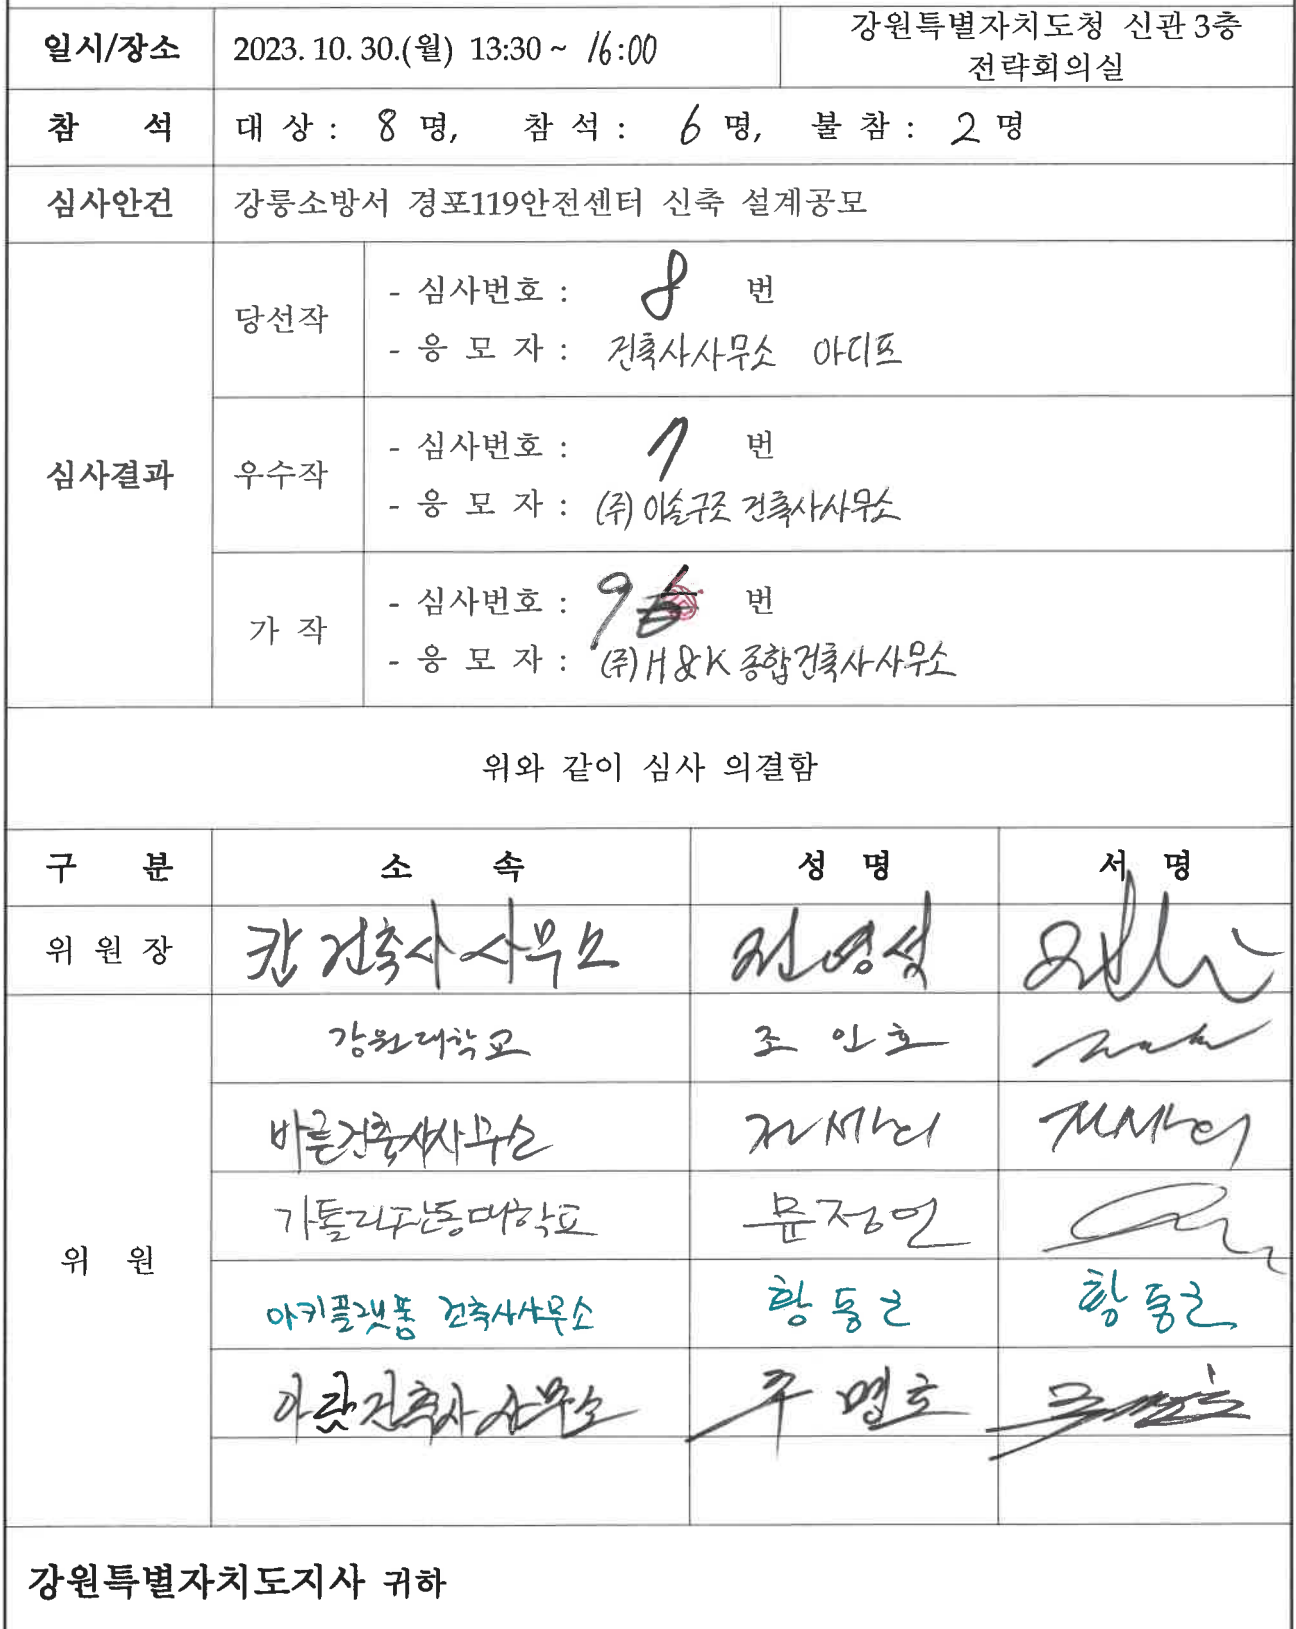 일시/장소 2023. 10. 30.(월) 13:30 ~ 16:00 강원특별자치도청 신관 3층
전략회의실
참 석 대 상 : 8 명, 참 석 : 6 명, 불 참 : 2 명
심사안건 강릉소방서 경포119안전센터 신축 설계공모
심사결과
당선작
- 심사번호 : 8 번
- 응 모 자 : 건축사사무소 아디프
우수작
- 심사번호 : 7 번
- 응 모 자 : (주) 이솔구조 건축사사무소
가 작
- 심사번호 : 9 번
- 응 모 자 : (주) H&K 종합건축사사무소
위와 같이 심사 의결함
구 분 소 속 성 명 서 명
위 원 장 칸 건축사사무소 전영석
위 원
강원대학교 조인호
바른건축사사무소
가톨릭관동대학교 문정언
아키플랫폼 건축사사무소 황동근 황동근
건축사사무소 주명호
강원특별자치도지사 귀하